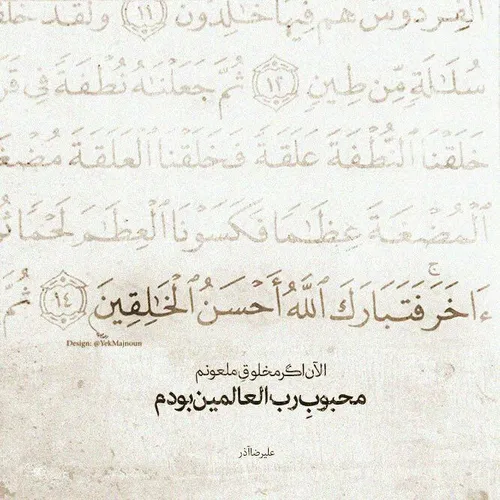 الفِردَوسَ هُم فيها خَٰلِدُونَ ۝١١ وَلَقَد خَلَقـ
سُلَٰلَةٍ مِّن طِينٍ ۝١٢ ثُمَّ جَعَلنَٰهُ نُطفَةً فِى قَر
خَلَقنَا ٱلنُّطفَةَ عَلَقَةً فَخَلَقنَا ٱلعَلَقَةَ مُضغـ
ٱلمُضغَةَ عِظَٰمًا فَكَسَونَا ٱلعِظَٰمَ لَحمًا ثُـ
ءَاخَرَ ۚ فَتَبَارَكَ ٱللَّهُ أَحسَنُ ٱلخَٰلِقِينَ ۝١٤ ثُمَّ
Design: @YekMajnoun
الآن اگر مخلوقِ ملعونم
محبوبِ رب العالمین بودم
علیرضا آذر